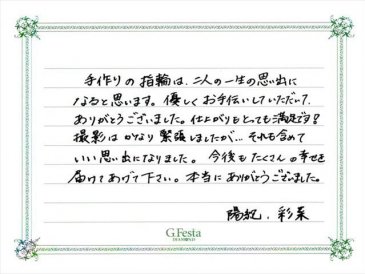 手作りの指輪は、二人の一生の思い出に
なると思います。優しくお手伝いしていただいて、
ありがとうございました。仕上がりもとっても満足です!
撮影はかなり緊張しましたが… それも含めて
いい思い出になりました。今後もたくさんの幸せを
届けてあげて下さい。本当にありがとうございました。
陽紀、彩菜
G.Festa
DIAMOND